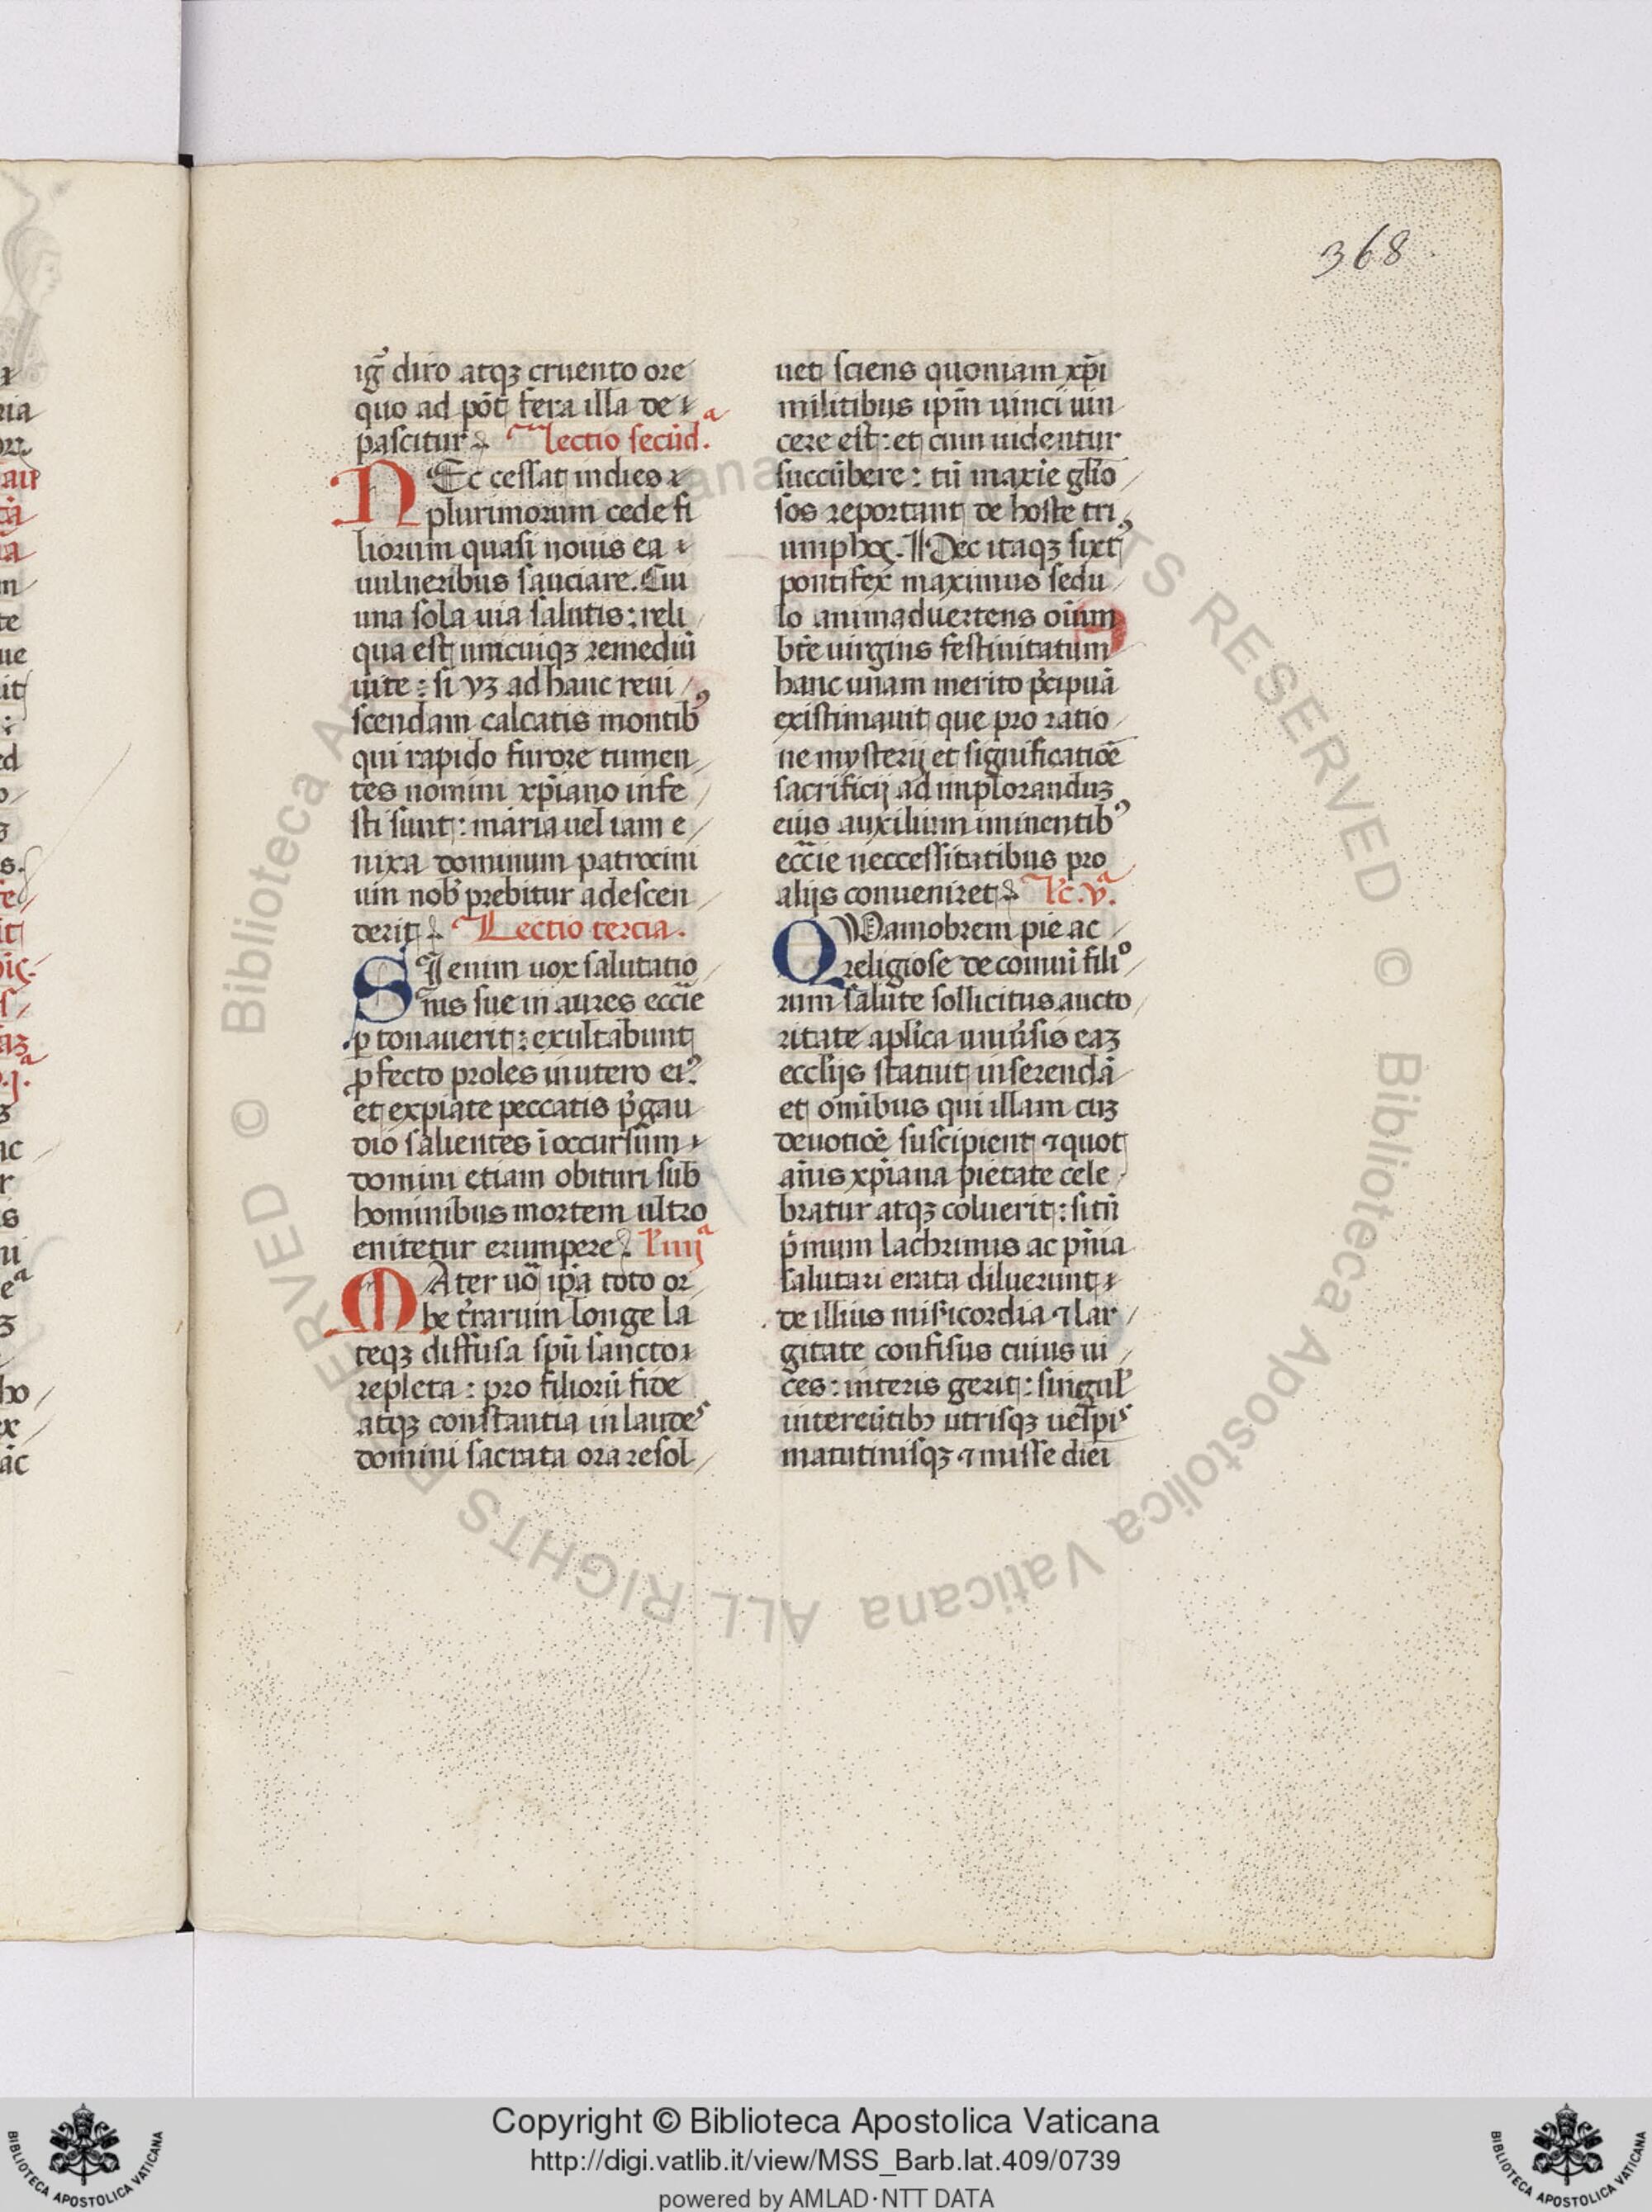 368
igr̃ diro atqꝫ cruento ore
quo ad pōt fera illa de
pascitur lectio secūdª.
NEc cessat indies
plurimorum cede fi
liorum quasi nouis ea
uulneribus sauciare. Cui
una sola uia salutis: reli
qua est unicuiqꝫ remediū
uite: si vꝫ ad hanc reui
scendam calcatis montibꝰ
qui rapido furore tumen
tes nomini xp̄iano infe
sti sunt: maria uel iam e
nixa dominum patrocini
um nob̄ prebitur adescen
derit Lectio tercia.
SI enim uox salutatio
nis sue in aures eccīe
ꝑtonauerit: exultabunt
ꝓfecto proles inutero eiꝰ
et expiate peccatis p̄ gau
dio salientes ī occursum
domini etiam obituri sub
hominibus mortem ultro
enitetur erumpere. l' iiijª
MAter uō ip̄a toto or
be t̄rarum longe la
teqꝫ diffusa sp̄u sancto
repleta: pro filiorū fide
atqꝫ constantia in laudes
domini sacrata ora resol
uet sciens quoniam xp̄i
militibus ip̄m uinci uin
cere est: et cum uidentur
succūbere: tū maxīe glīo
sos reportant de hoste tri
umphos. Hec itaqꝫ sixtꝰ
pontifex maximus sedu
lo animaduertens oīum
bt̄e uirginis festiuitatum
hanc unam merito p̄cipuā
existimauit que pro ratio
ne mysterij et significatiōe
sacrificij ad implorandūꝫ
eius auxilium iminentibꝰ
eccīe neccessitatibus pro
alijs conueniret lc̄. vª.
QUamobrem pie ac
religiose de comuni filio
rum salute sollicitus aucto
ritate ap̄lica uniūsis eaꝫ
eccl̄ijs statuit inserendā
et omībus qui illam cuꝫ
deuotiōe suscipient ⁊ quot
an̄is xp̄iana pietate cele
bratur atqꝫ coluerit: si tn̄
p̄mum lachrimis ac pn̄ia
salutari erata diluerunt
de illius mis̄icordia ⁊ lar
gitate confisus cuius ui
ces: in teris gerit: singul'
intereūtibꝫ utrisqꝫ uesp̄is
matutinisqꝫ ⁊ misse diei
Copyright © Biblioteca Apostolica Vaticana
http://digi.vatlib.it/view/MSS_Barb.lat.409/0739
powered by AMLAD·NTT DATA